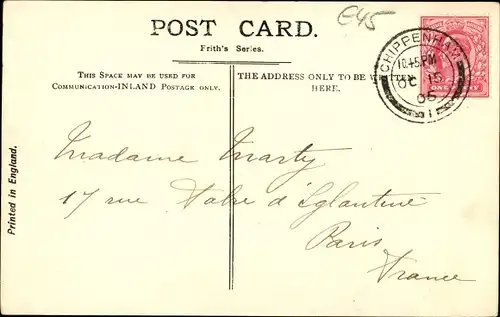 E45
POST CARD.
Frith's Series.
THIS SPACE MAY BE USED FOR
COMMUNICATION-INLAND POSTAGE ONLY.
THE ADDRESS ONLY TO BE WRITTEN
HERE.
CHIPPENHAM
10.45 PM
OC 15
05
1
ONE PENNY
Printed in England.
Madame Marty
17 rue Fabre d'Eglantine
Paris
France